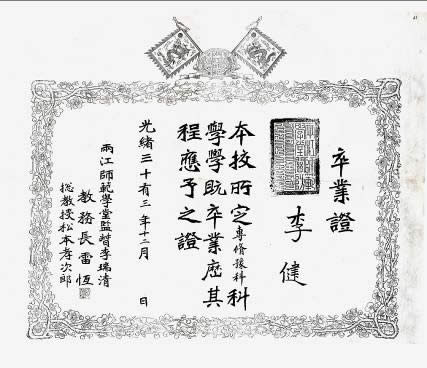 卒業證
李健
本校所定專脩豫科科
學學既卒業歴其
程應予之證
光緒三十有三年十二月　日
兩江師範學堂監督李瑞清
教務長雷恆
総教授松本孝次郎